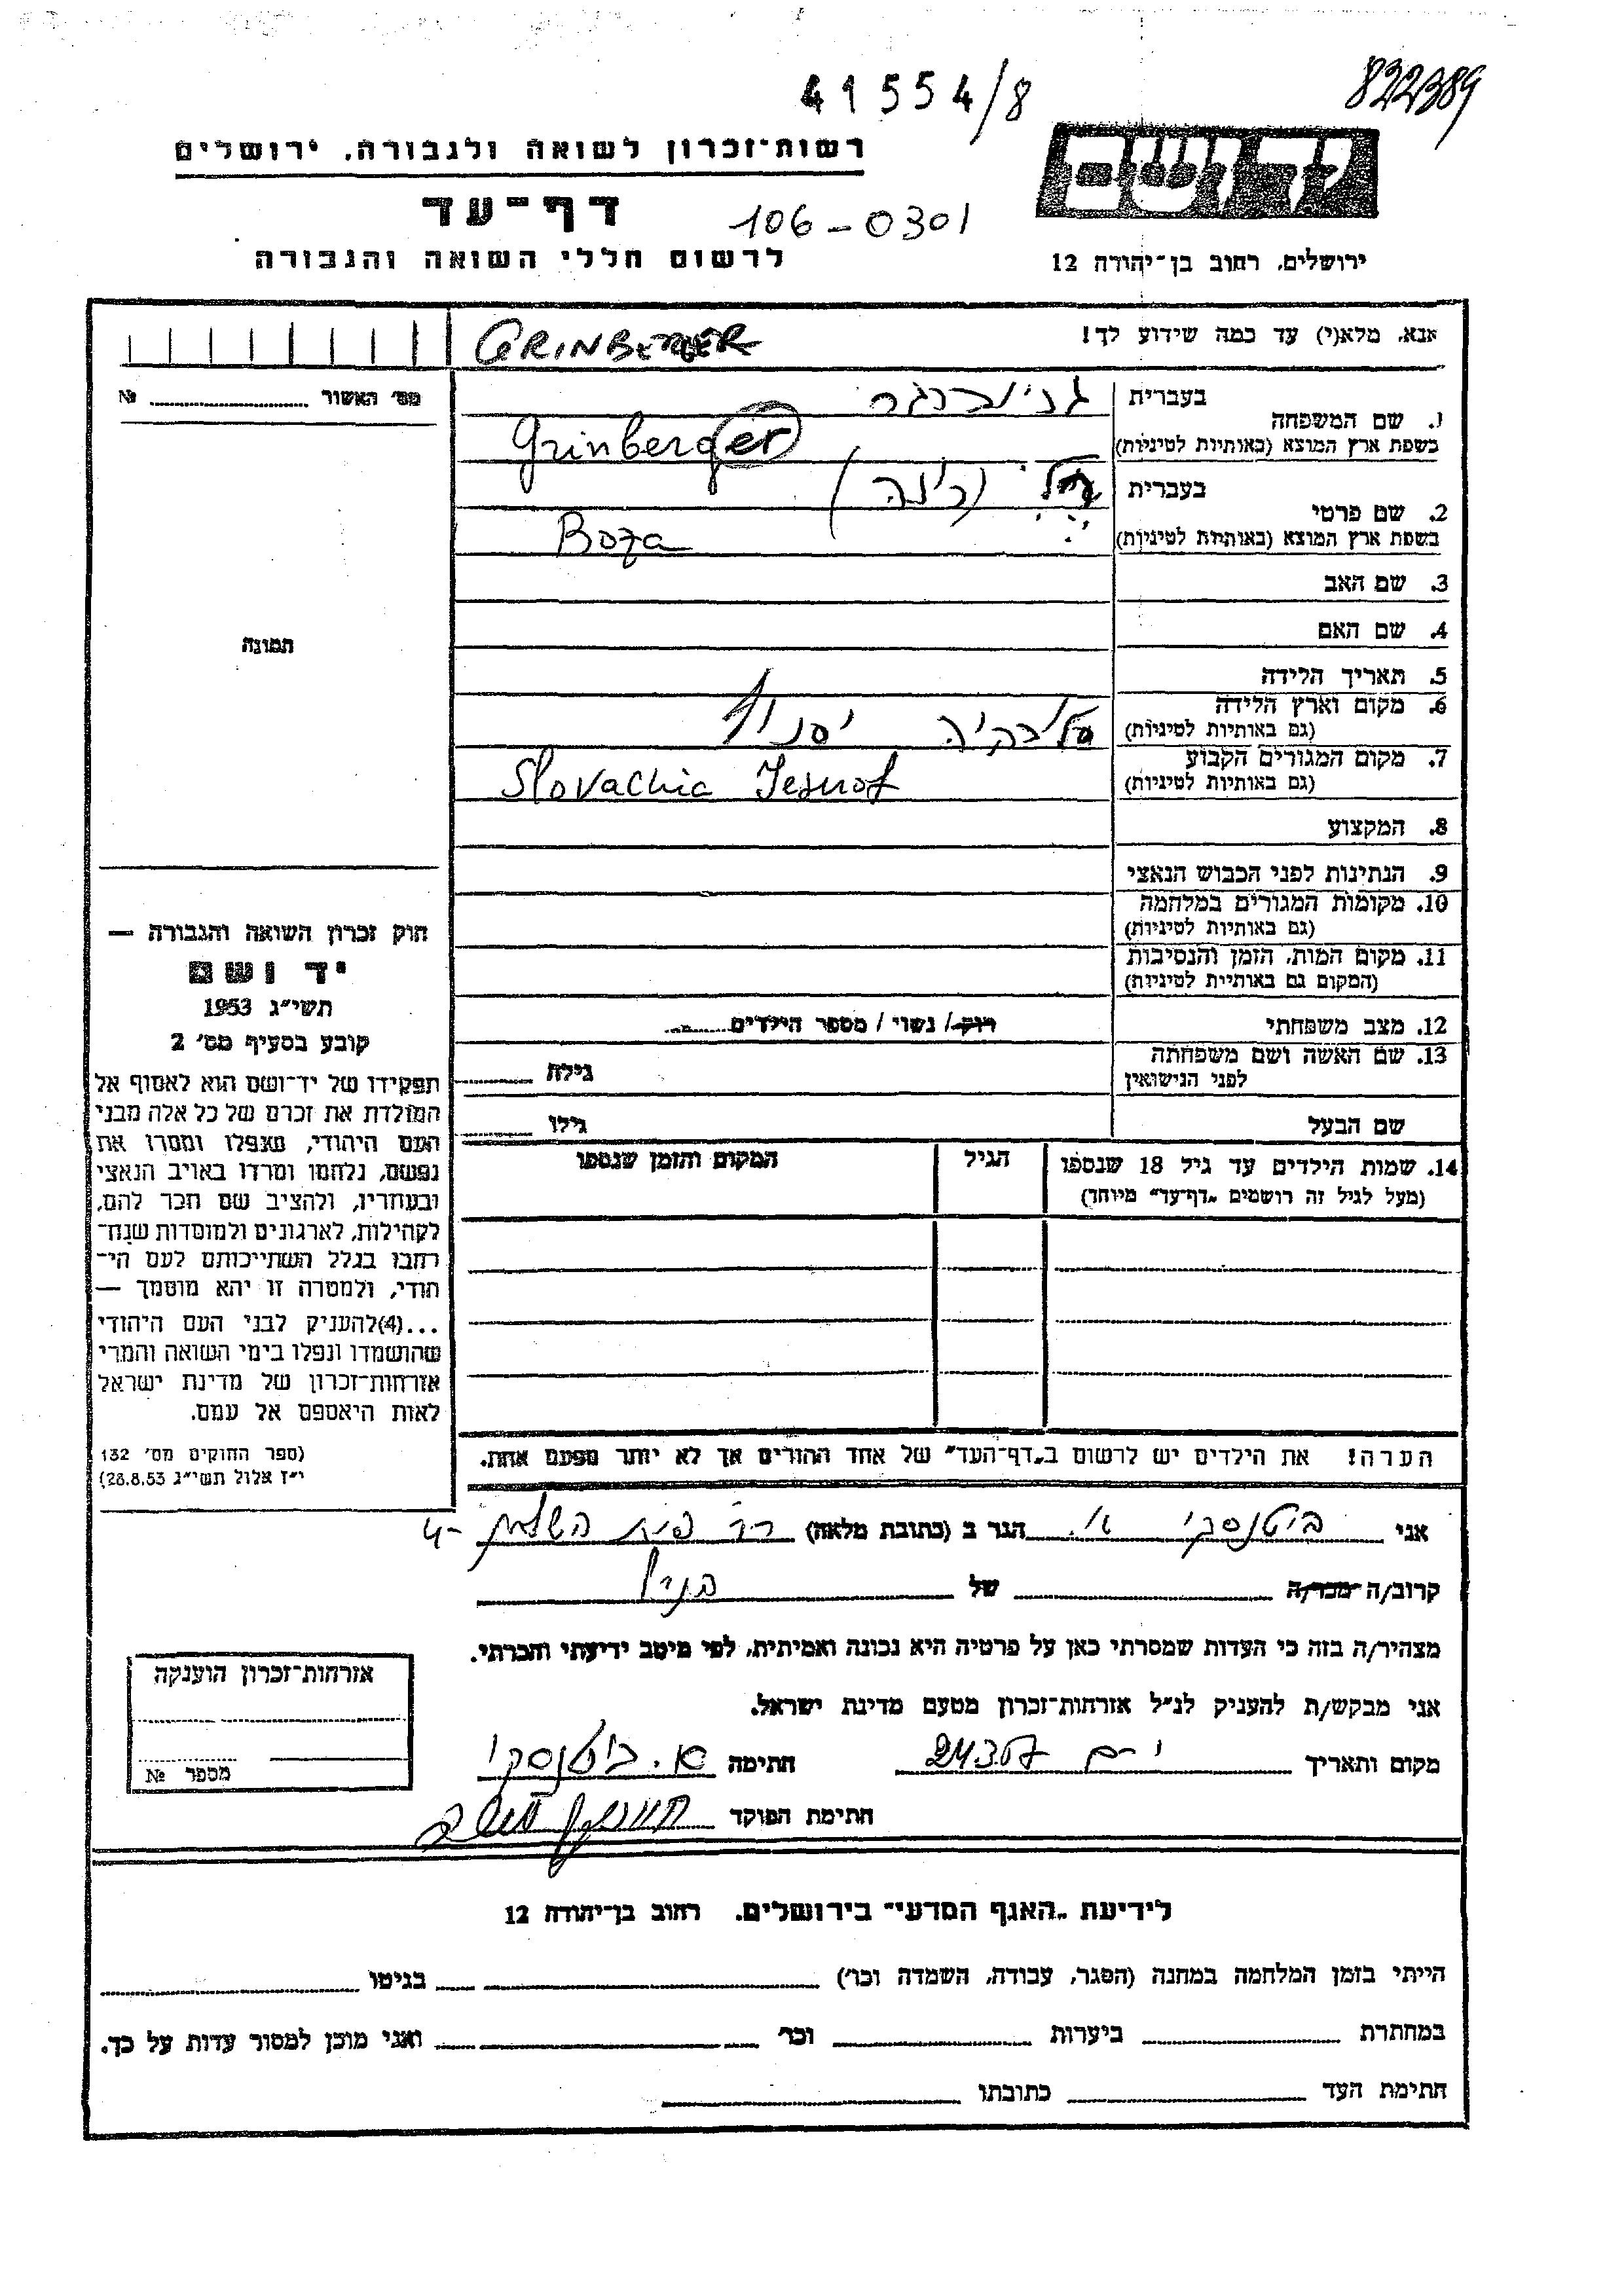 41554/8
822389
רשות־זכרון לשואה ולגבורה, ירושלים
יד ושם
דף־עד
106-0301
לרשום חללי השואה והגבורה
ירושלים, רחוב בן־יהודה 12
אנא, מלא(י) עד כמה שידוע לך!
GRINBERGER
מס׳ האשור № 
1. שם המשפחה
בעברית
בשפת ארץ המוצא (באותיות לטיניות)
Grinberger
2. שם פרטי
בעברית
בשפת ארץ המוצא (באותיות לטיניות)
Boza
3. שם האב
4. שם האם
5. תאריך הלידה
6. מקום וארץ הלידה
(גם באותיות לטיניות)
7. מקום המגורים הקבוע
(גם באותיות לטיניות)
Slovachia
8. המקצוע
9. הנתינות לפני הכבוש הנאצי
10. מקומות המגורים במלחמה
(גם באותיות לטיניות)
11. מקום המות, הזמן והנסיבות
(המקום גם באותיות לטיניות)
12. מצב משפחתי
רווק/ נשוי / מספר הילדים
13. שם האשה ושם משפחתה
לפני הנישואין
גילה
שם הבעל
גילו
14. שמות הילדים עד גיל 18 שנספו
(מעל לגיל זה רושמים „דף־עד״ מיוחד)
הגיל
המקום והזמן שנספו
הערה! את הילדים יש לרשום ב„דף־העד״ של אחד ההורים אך לא יותר מפעם אחת.
תמונה
חוק זכרון השואה והגבורה —
יד ושם
תשי״ג 1953
קובע בסעיף מס׳ 2
תפקידו של יד־ושם הוא לאסוף אל
המולדת את זכרם של כל אלה מבני
העם היהודי, שנפלו ומסרו את
נפשם, נלחמו ומרדו באויב הנאצי
ובעוזריו, ולהציב שם וזכר להם,
לקהילות, לארגונים ולמוסדות שנח־
רבו בגלל השתייכותם לעם הי־
הודי, ולמטרה זו יהא מוסמך —
...(4)להעניק לבני העם היהודי
שהושמדו ונפלו בימי השואה והמרי
אזרחות־זכרון של מדינת ישראל
לאות היאספם אל עמם.
(ספר החוקים מס׳ 132
י״ז אלול תשי״ג 28.8.53)
אני ביטנסקי א. הגר ב (כתובת מלאה)
קרוב/ה מכר/ה של
מצהיר/ה בזה כי העדות שמסרתי כאן על פרטיה היא נכונה ואמיתית, לפי מיטב ידיעתי והכרתי.
אני מבקש/ת להעניק לנ״ל אזרחות־זכרון מטעם מדינת ישראל.
מקום ותאריך י-ם חתימה א. ביטנסקי
חתימת הפוקד
אזרחות־זכרון הוענקה
מספר №
לידיעת „האגף המדעי״ בירושלים, רחוב בן־יהודה 12
הייתי בזמן המלחמה במחנה (הסגר, עבודה, השמדה וכו׳) בגיטו
במחתרת ביערות וכו׳ ואני מוכן למסור עדות על כך.
חתימת העד כתובתו